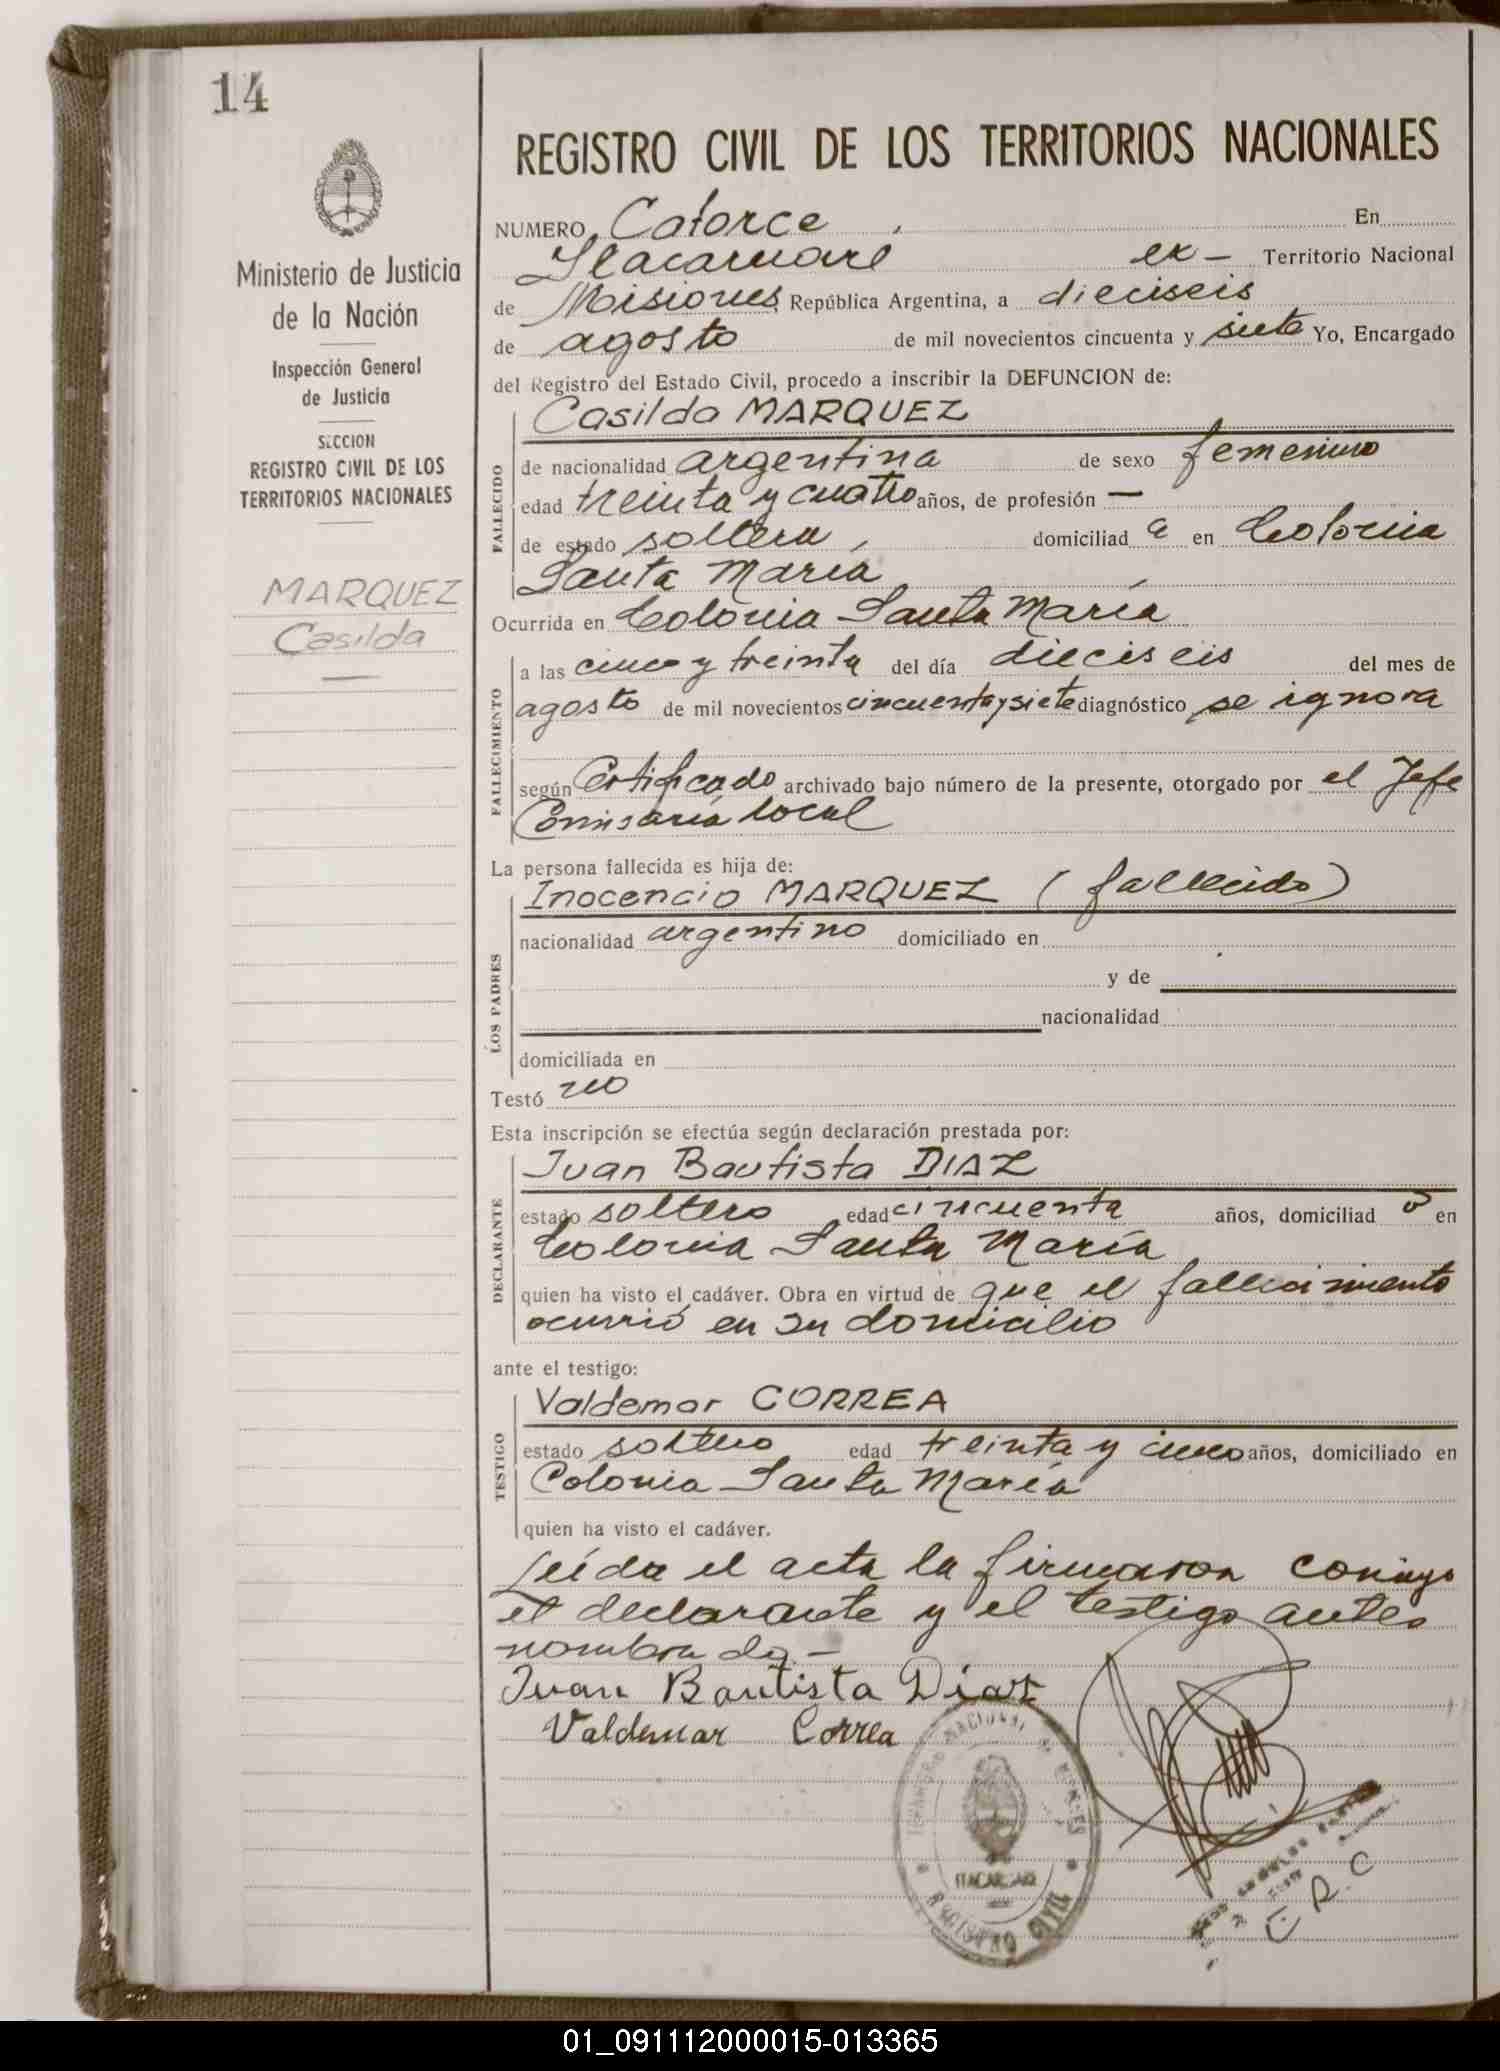 14
Ministerio de Justicia
de la Nación
Inspección General
de Justicia
SECCION
REGISTRO CIVIL DE LOS
TERRITORIOS NACIONALES
MARQUEZ
Casilda
REGISTRO CIVIL DE LOS TERRITORIOS NACIONALES
NUMERO Catorce En
Itacaruaré ex - Territorio Nacional
de Misiones, República Argentina, a dieciseis
de agosto de mil novecientos cincuenta y siete Yo, Encargado
del Registro del Estado Civil, procedo a inscribir la DEFUNCION de:
FALLECIDO
Casilda MARQUEZ
de nacionalidad argentina de sexo femenino
edad treinta y cuatro años, de profesión —
de estado soltera, domiciliad a en Colonia
Santa María
Ocurrida en Colonia Santa María
FALLECIMIENTO
a las cinco y treinta del día dieciseis del mes de
agosto de mil novecientos cincuenta y siete diagnóstico se ignora
según Certificado archivado bajo número de la presente, otorgado por el Jefe
Comisaría local
La persona fallecida es hija de:
LOS PADRES
Inocencio MARQUEZ (fallecido)
nacionalidad argentino domiciliado en
y de
nacionalidad
domiciliada en
Testó no
Esta inscripción se efectúa según declaración prestada por:
DECLARANTE
Juan Bautista DIAZ
estado soltero edad cincuenta años, domiciliad o en
Colonia Santa María
quien ha visto el cadáver. Obra en virtud de que el fallecimiento
ocurrió en su domicilio
ante el testigo:
TESTIGO
Valdemar CORREA
estado soltero edad treinta y cinco años, domiciliado en
Colonia Santa María
quien ha visto el cadáver.
Leída el acta la firmaron conmigo
el declarante y el testigo antes
nombrado -
Juan Bautista Díaz
Valdemar Correa
REGISTRO CIVIL
E. R. C
01_091112000015-013365